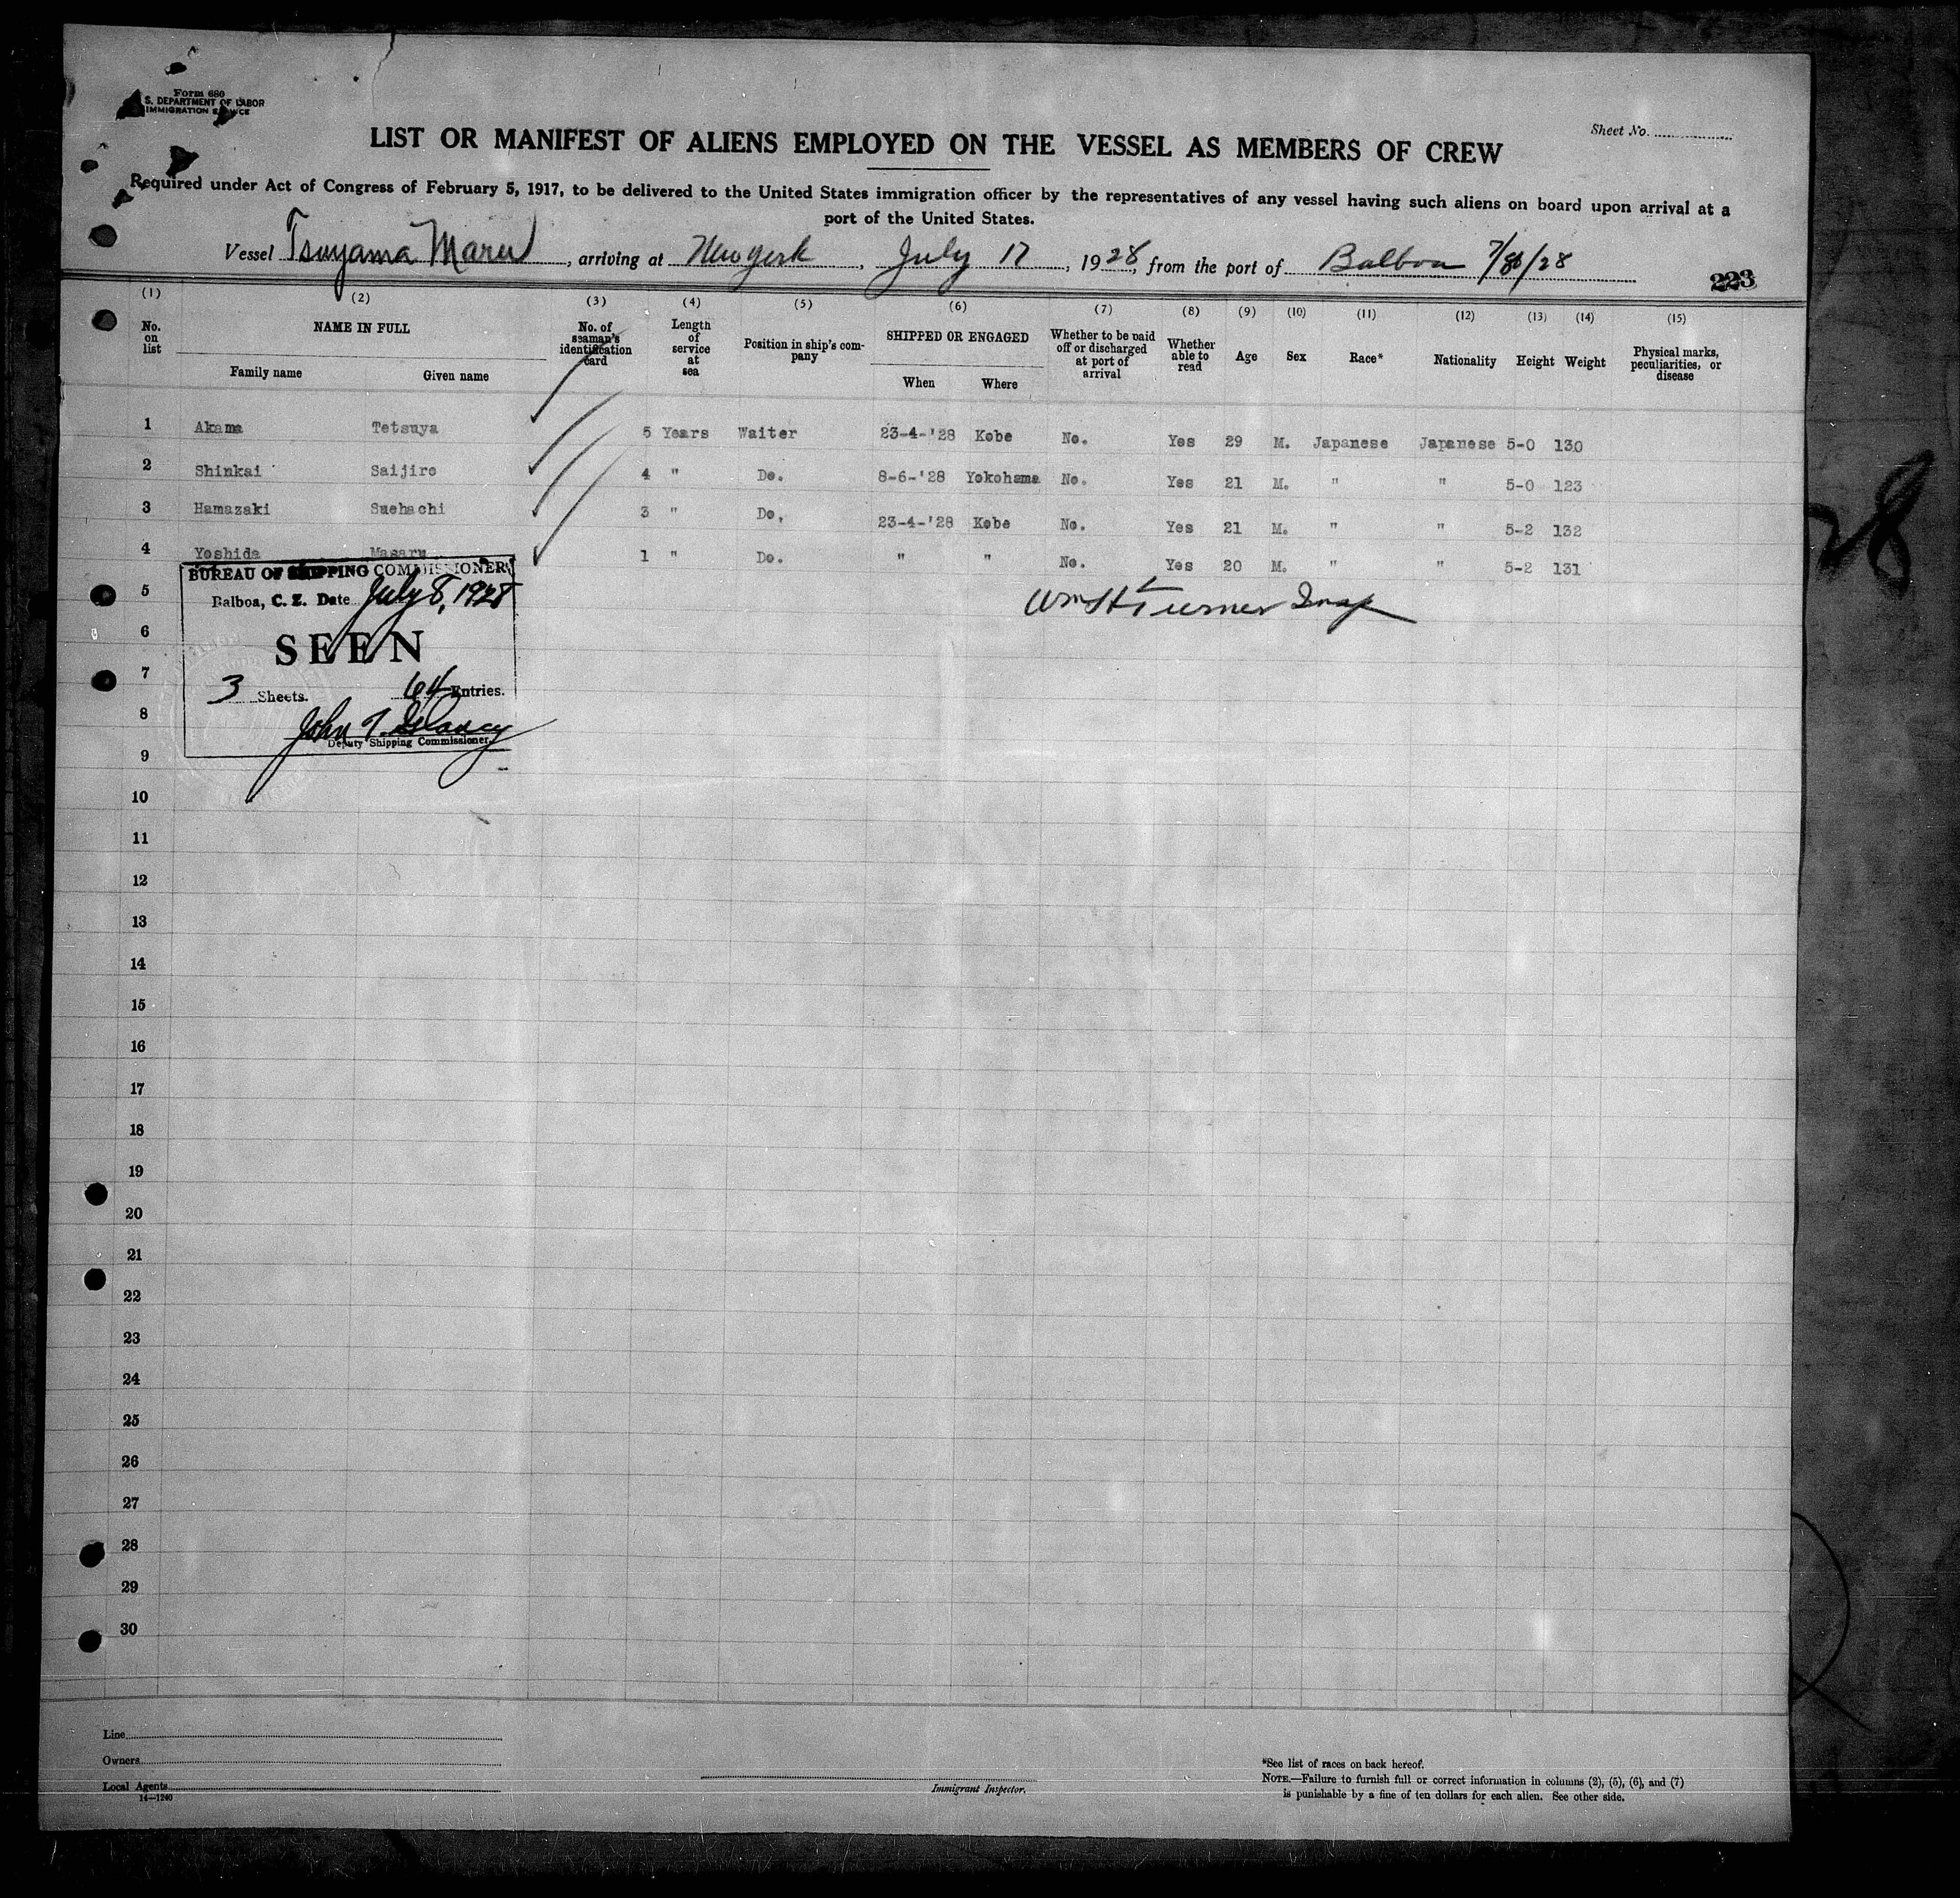 Form 680
S. DEPARTMENT OF LABOR
IMMIGRATION SERVICE
Sheet No.
LIST OR MANIFEST OF ALIENS EMPLOYED ON THE VESSEL AS MEMBERS OF CREW
Required under Act of Congress of February 5, 1917, to be delivered to the United States immigration officer by the representatives of any vessel having such aliens on board upon arrival at a
port of the United States.
Vessel Tsuyama Maru, arriving at New York, July 17, 1928, from the port of Balboa 7/8/28
223
(1) (2) (3) (4) (5) (6) (7) (8) (9) (10) (11) (12) (13) (14) (15)
No. on list NAME IN FULL Family name Given name No. of seaman's identification card Length of service at sea Position in ship's company SHIPPED OR ENGAGED When Where Whether to be paid off or discharged at port of arrival Whether able to read Age Sex Race* Nationality Height Weight Physical marks, peculiarities, or disease
1 Akama Tetsuya 5 Years Waiter 23-4-'28 Kobe No. Yes 29 M. Japanese Japanese 5-0 130
2 Shinkai Saijiro 4 " Do. 8-6-'28 Yokohama No. Yes 21 M. " " 5-0 123
3 Hamazaki Suehachi 3 " Do. 23-4-'28 Kobe No. Yes 21 M. " " 5-2 132
4 Yoshida Masaru 1 " Do. " " No. Yes 20 M. " " 5-2 131
BUREAU OF SHIPPING COMMISSIONER
Balboa, C. Z. Date July 8, 1928
SEEN
3 Sheets. 64 Entries.
John T.
Deputy Shipping Commissioner.
Wm H Turner Insp
5
6
7
8
9
10
11
12
13
14
15
16
17
18
19
20
21
22
23
24
25
26
27
28
29
30
28
Line
Owners
Local Agents
14—1240
Immigrant Inspector.
*See list of races on back hereof.
NOTE.—Failure to furnish full or correct information in columns (2), (5), (6), and (7)
is punishable by a fine of ten dollars for each alien. See other side.